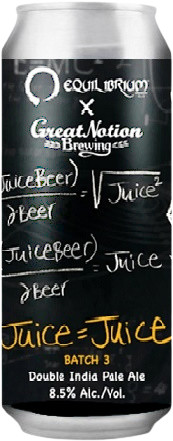 EQUILIBRIUM
X
Great Notion
Brewing
JuiceBeer)
∂Beer
= √Juice²
JuiceBeer)
∂Beer
= Juice
Juice = Juice
BATCH 3
Double India Pale Ale
8.5% Alc./Vol.